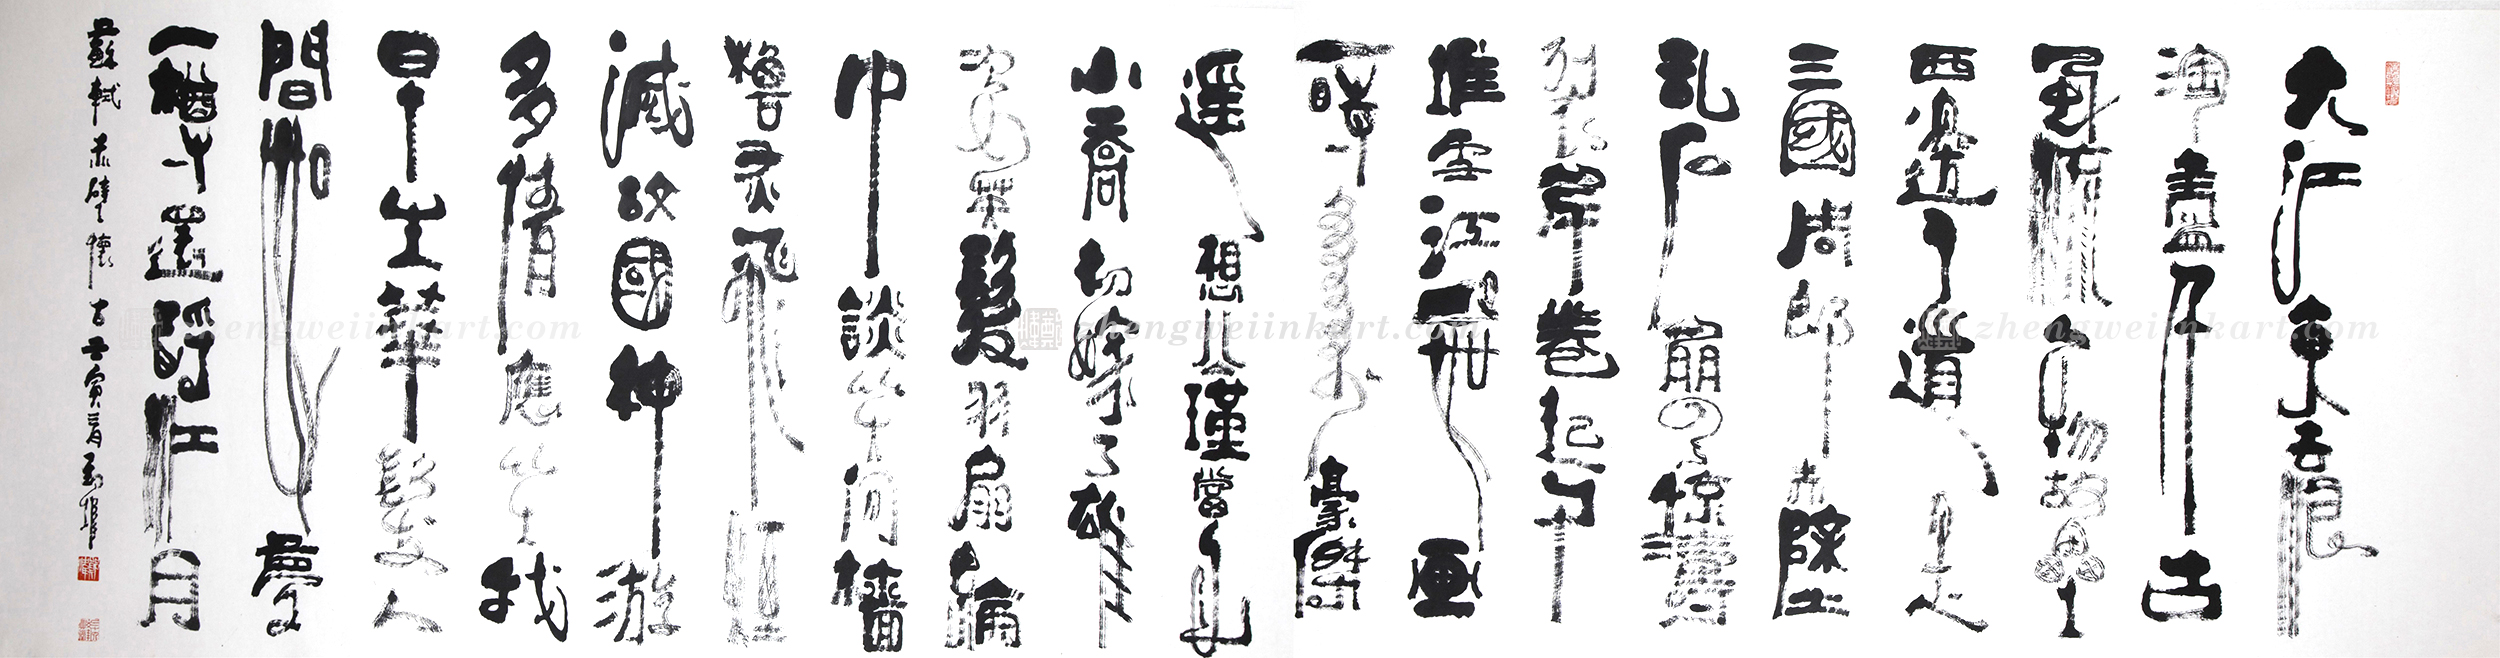 大江東去浪
淘盡千古
風流人物故壘
西邊人道是
三國周郎赤壁
亂石崩雲惊濤
裂岸卷起千
堆雪江山如画
一時多少豪傑
遥想公瑾當年
小喬初嫁了雄
姿英發羽扇綸
巾談笑間檣
櫓灰飛煙
滅故國神游
多情應笑我
早生華髮人
間如夢
一樽還酹江月
蘇軾赤壁懷古壬寅
zhengweiinkart.com
zhengweiinkart.com
zhengweiinkart.com